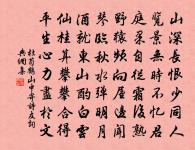 山深長恨少同人
覽景無時不憶君
庭果自從霜後熟
野猿頻向屋邊聞
琴臨秋水彈明月
酒就東山酌白雲
仙桂算攀攀合得
平生心力盡於文
杜荀鶴山中寄詩友詞
典網集